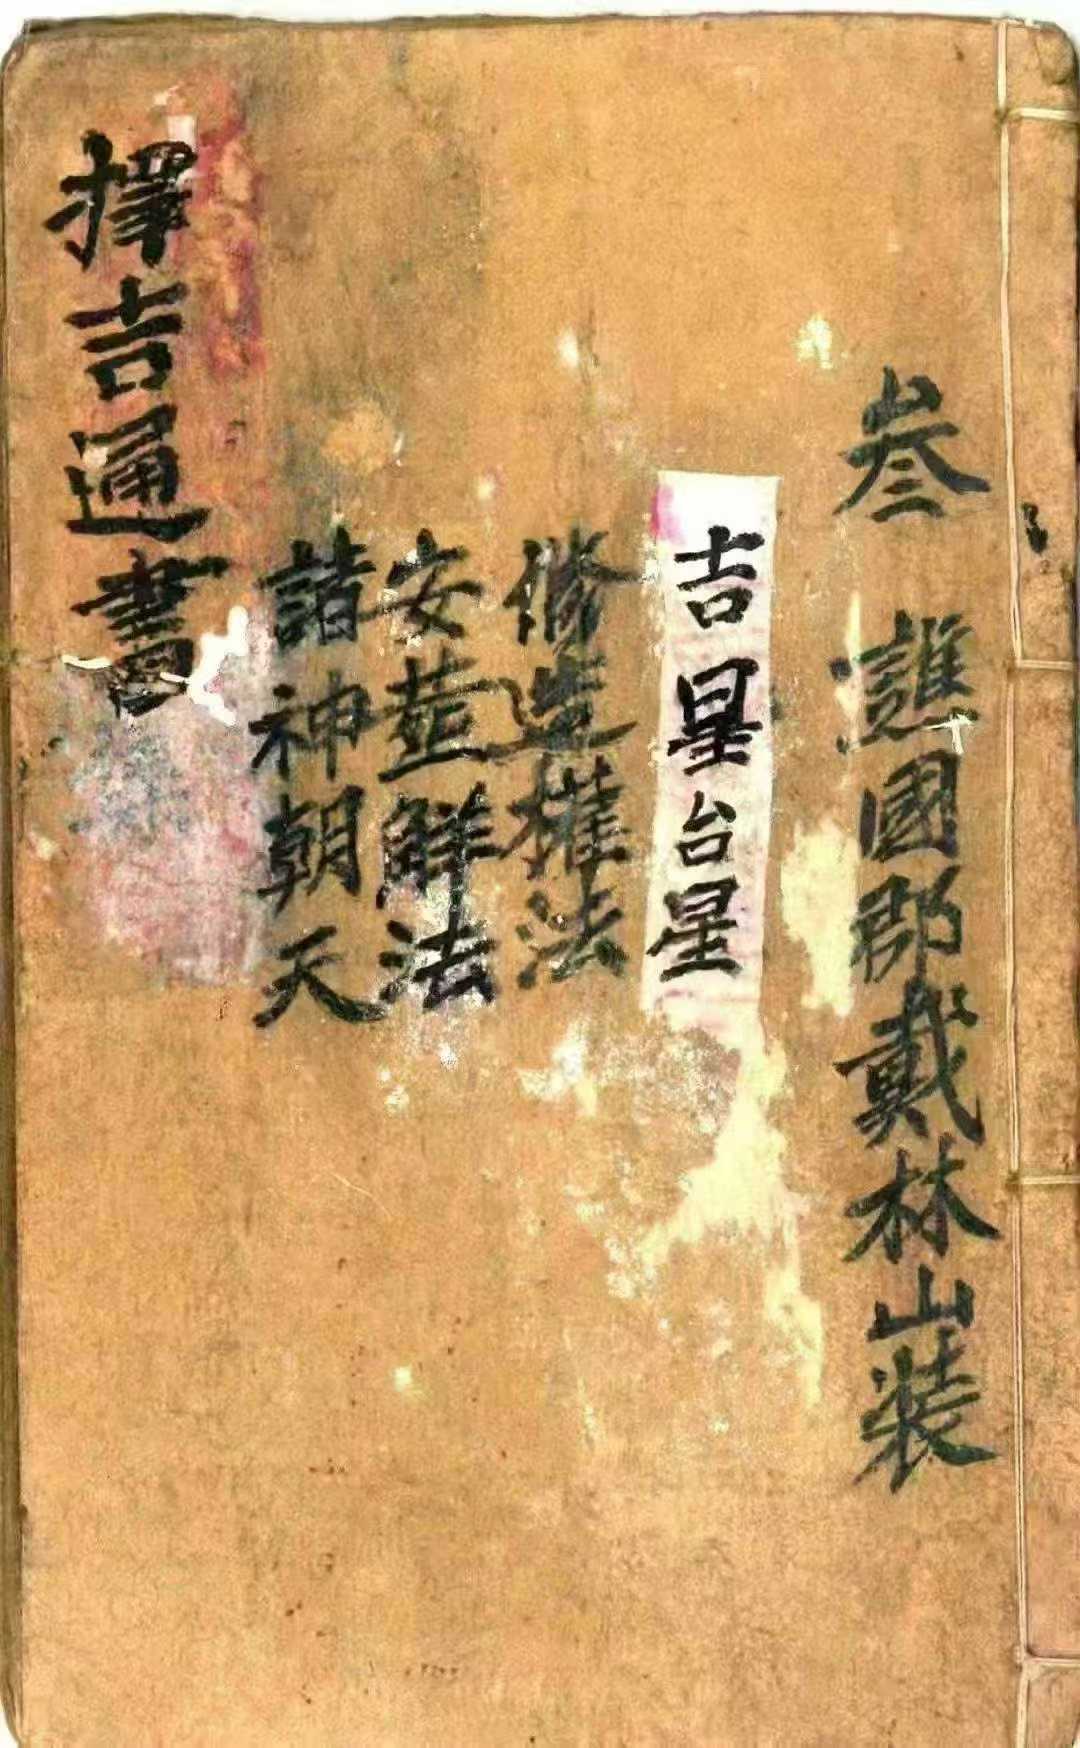 叁 譙國郡戴林山裝
吉星台星
修造權法
安葬解法
諸神朝天
擇吉通書